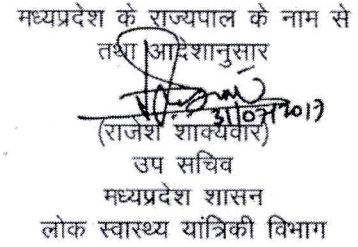 मध्यप्रदेश के राज्यपाल के नाम से
तथा आदेशानुसार
31/07/2017
(राजेश शाक्यवार)
उप सचिव
मध्यप्रदेश शासन
लोक स्वास्थ्य यांत्रिकी विभाग